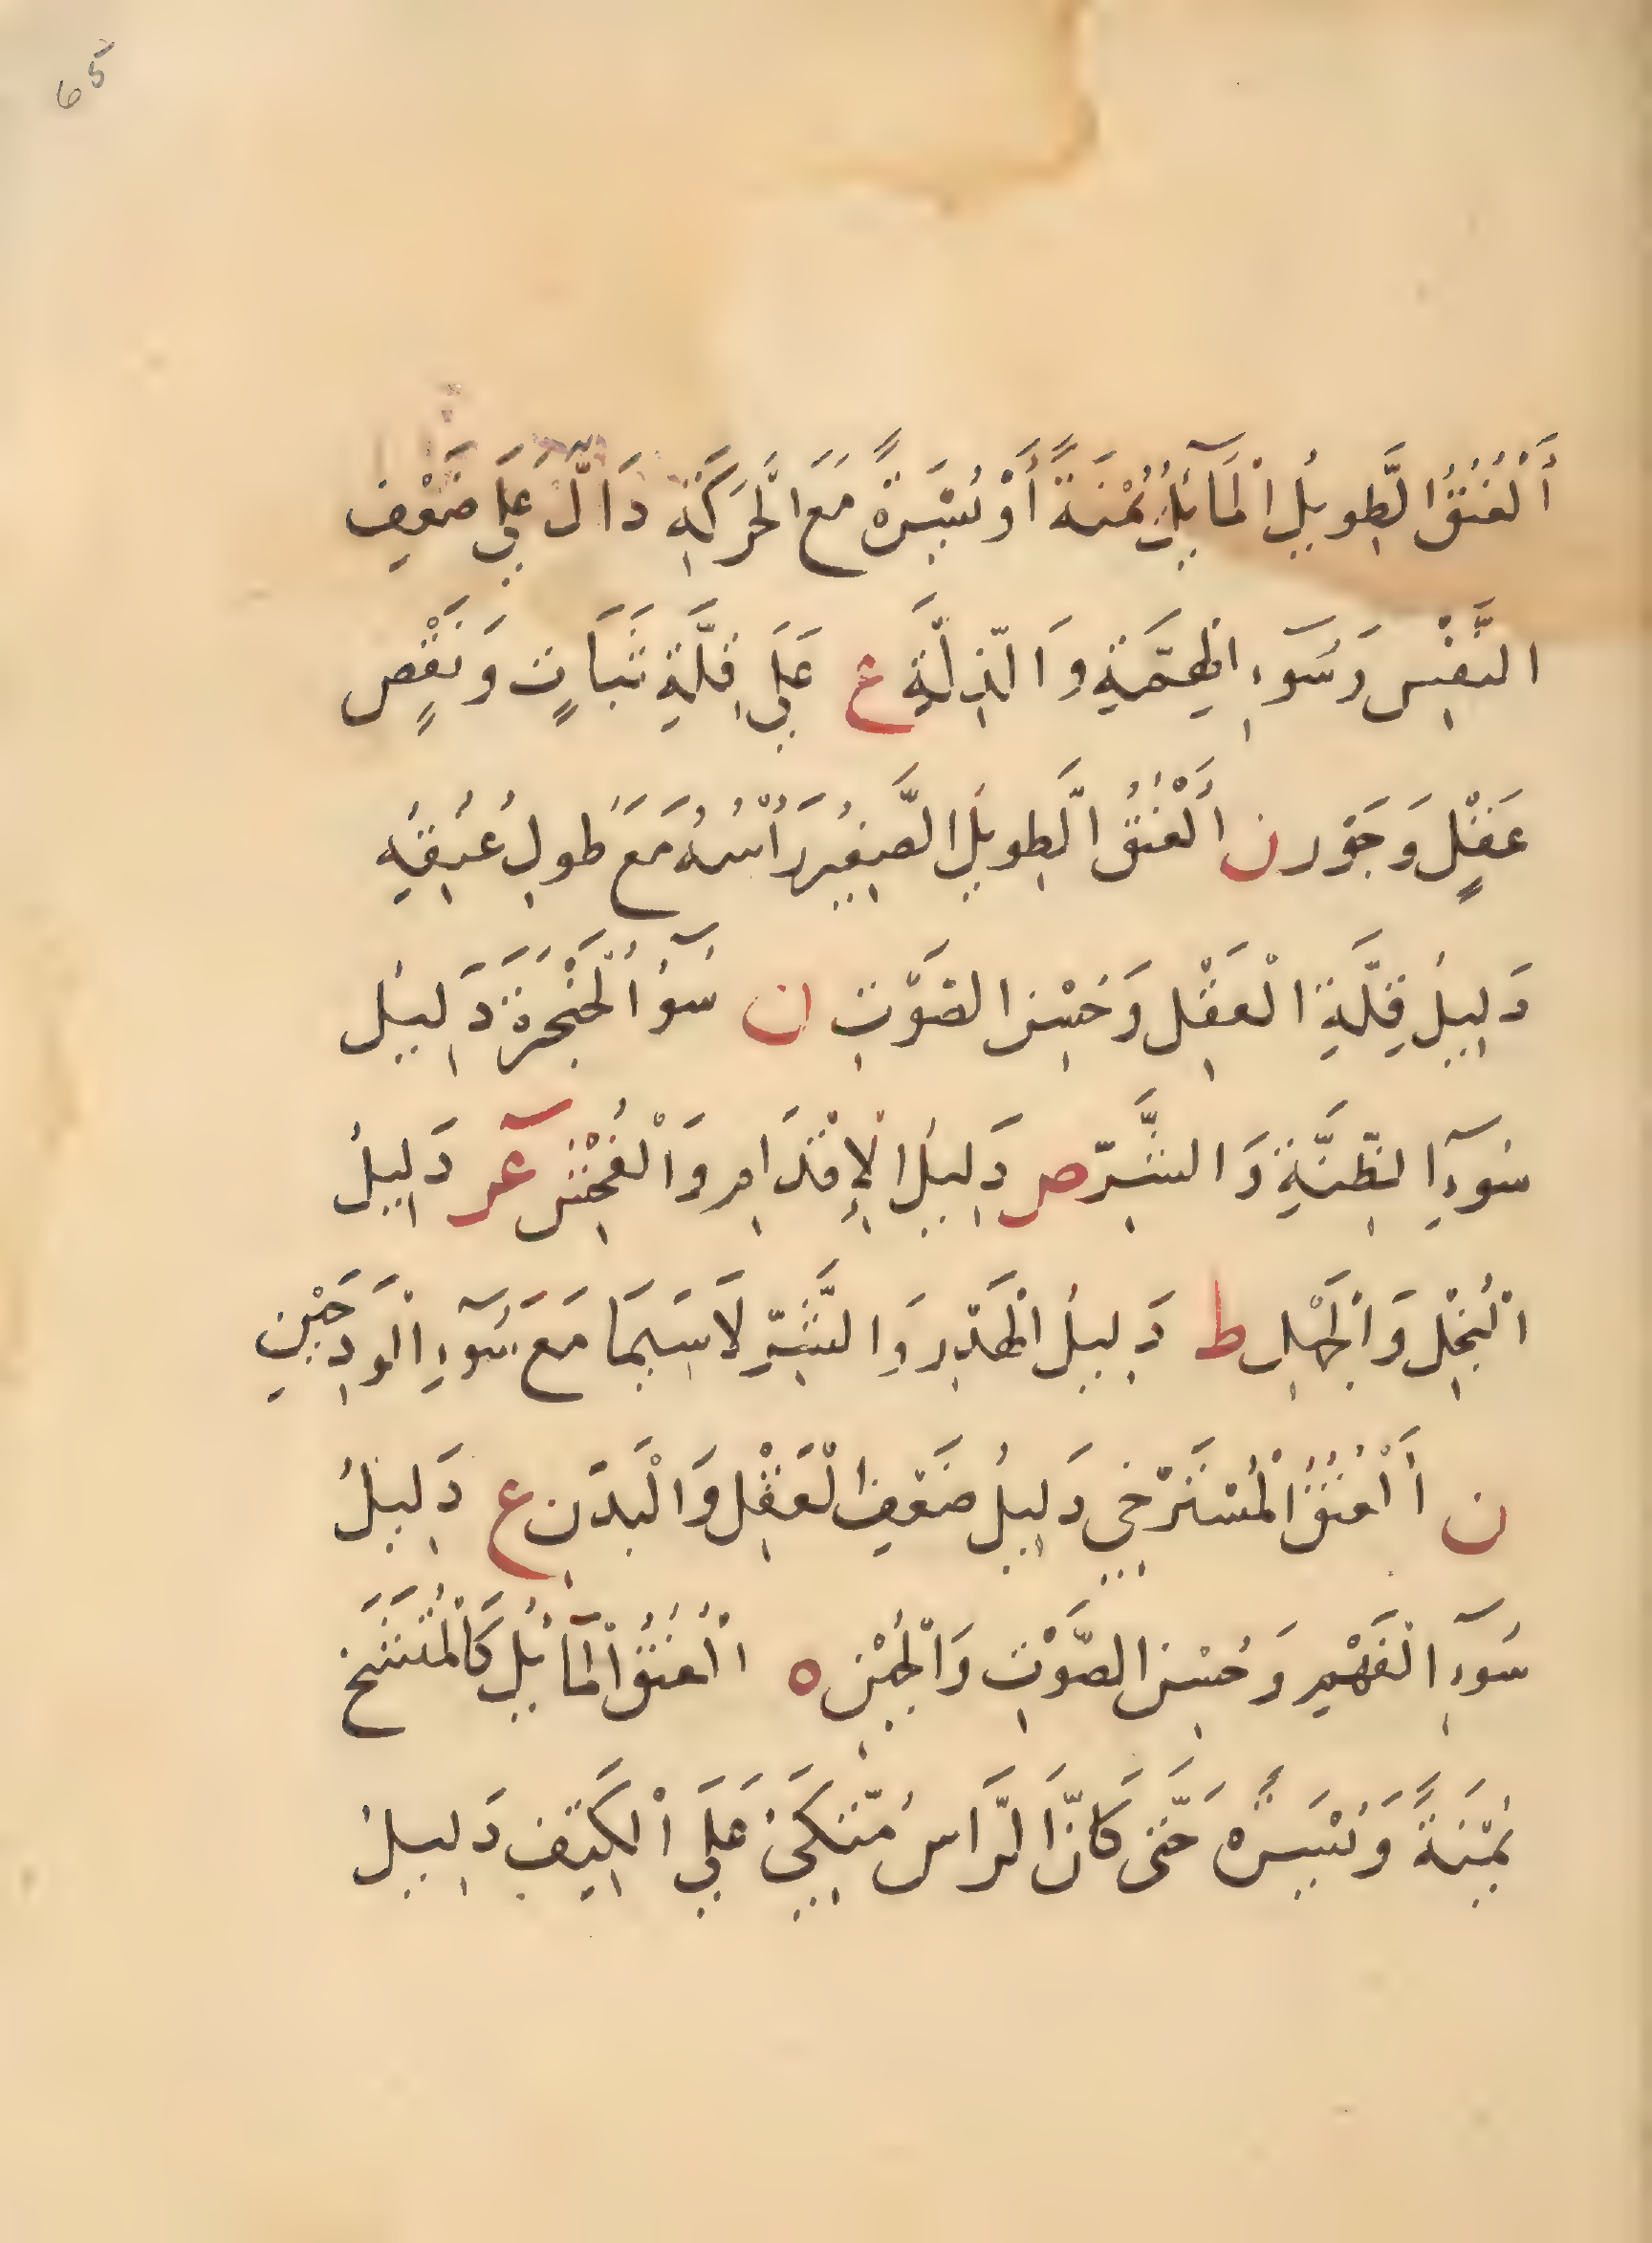 65
أَلْعُنُقُ الطَّوِيلُ الْمَآئِلُ يُمْنَةً أَوْ يُسْرَةً مَعَ الْحَرَكَةِ دَالٌّ عَلَي ضَعْفِ
النَّفْسِ وَسُوَءِ الْهِمَّةِ وَالذِّلَّةِ ع عَلَي قِلَّةِ ثَبَاتٍ وَنَقْصِ
عَقْلٍ وَجَوْر ن أَلْعُنُقُ الطَّوِيلِ الصَّغِيُر رَأْسُهُ مَعَ طُولِ عُنُقِهِ
دَلِيلُ قِلَّةِ الْعَقْلِ وَحُسْنِ الصَّوْتِ ن سُوٓءُ الْحَنْجَرَةِ دَلِيلُ
سُوٓءِ الظِّنَّةِ وَالشَّرِّ ص دَلِيلُ الْإِقْدَامِ وَالْفُحْشِ عر دَلِيلُ
الْبُخْلِ وَالْجَهْلِ ط دَلِيلُ الْهَذْرِ وَالشَّرِّ لَاسِيَمَا مَعَ سُوٓءِ الْوَدِجَيْنِ
ن أَلْعُنُقُ الْمُسْتَرْخِي دَلِيلُ ضَعْفِ الْعَقْلِ وَالْبَدَنِ ع دَلِيلُ
سُوٓءِ الْفَهْمِ وَحُسْنِ الصَّوْتِ وَالْجُبْنِ ه الْعُنُقُ الْمَآئِلُ كَالْمُتَشَنِّخ
يُمْنَةً وَيُسْرَةً حَتَّى كَانَّ الرَّاسَ مُتَّكِيٌ عَلَي الْكَتِفِ دَلِيلُ